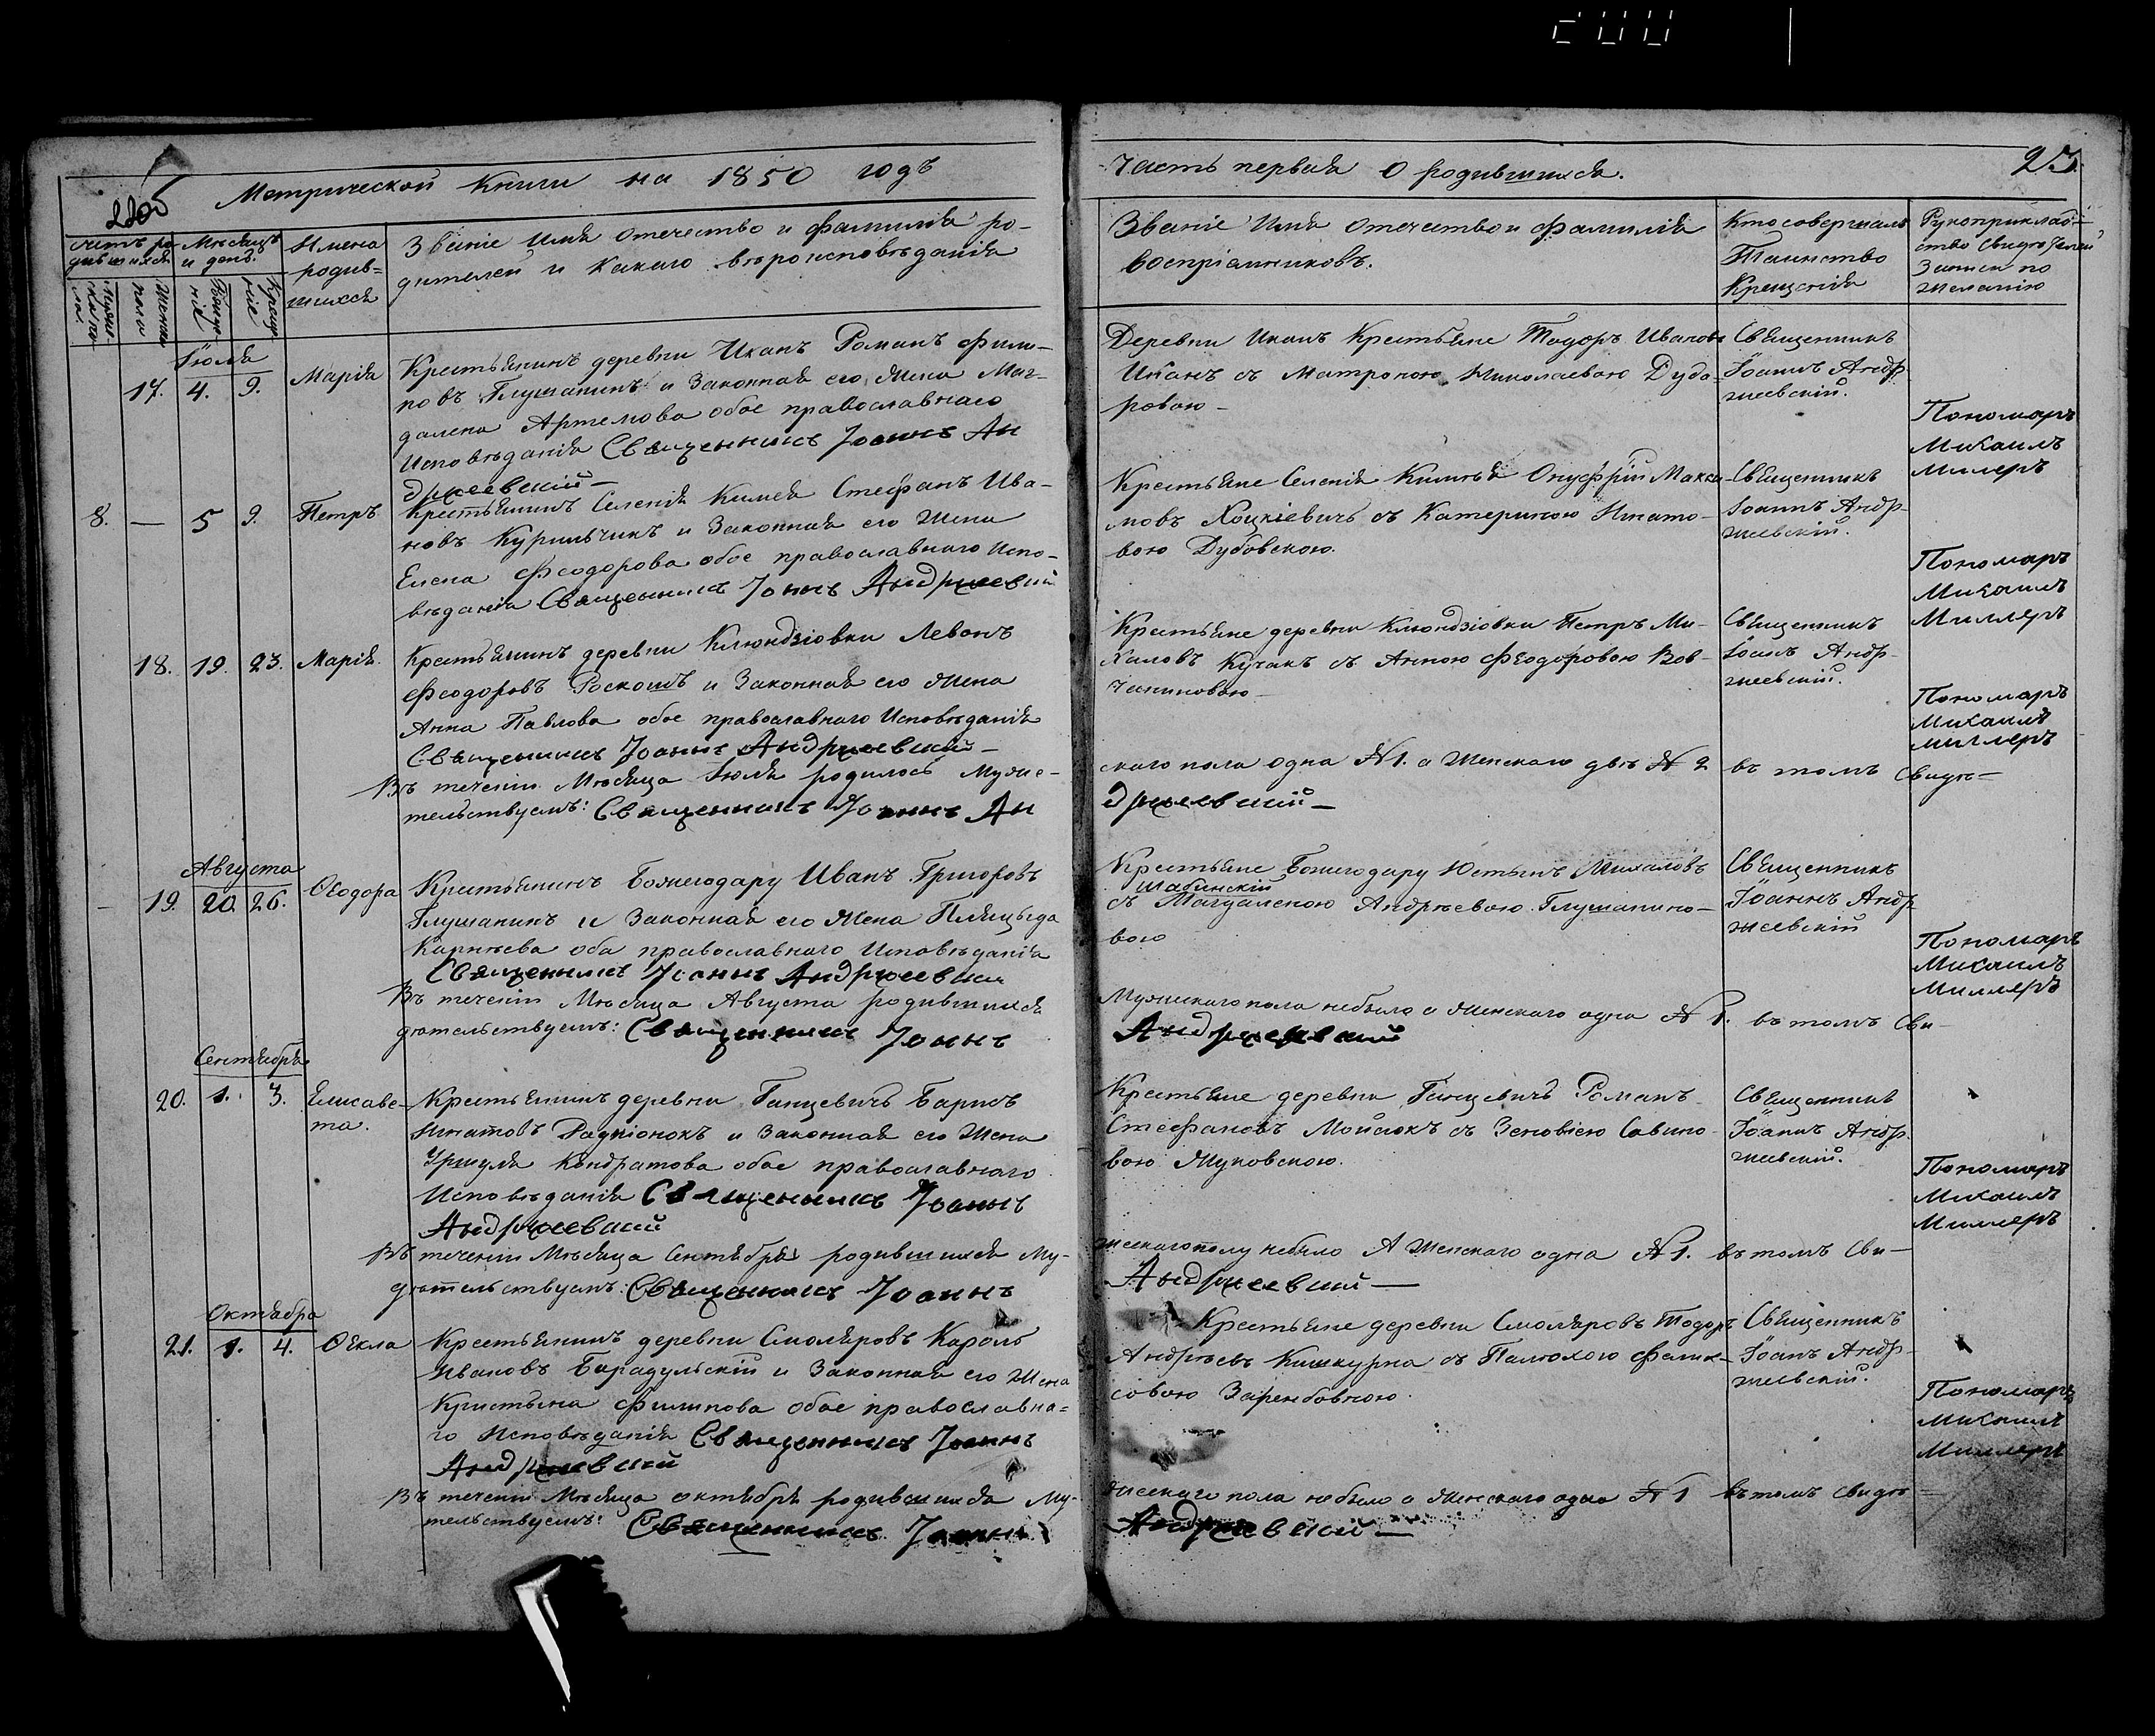 Метрической Книги на 1850 годъ
Часть первая о родившихся.
счетъ ро-
дившихся
Мужескаго пола
Женска пола
Мѣсяцъ
и день.
Рожденіе
Крещеніе
Имена
родив-
шихся
Званіе Имя Отечество и фамилія ро-
дителей и какаго вѣроисповѣданія
Званіе Имя Отечество и фамилія
Воспріемниковъ.
Кто совершалъ
Таинство
Крещенія
Рукоприклад-
ство свидетелей
Записи по
желанію
Іюля
17. 4. 9. Марія
Крестьянинъ деревни Иканъ Романъ Фили-
повъ Глушанинъ и Законная его Жена Маг-
далена Артемова обое православнаго
Исповѣданія Священникъ Іоаннъ Ан
држеевский
Деревни Иканъ Крестьяне Тодоръ Ивановъ
Иканъ съ Матроною Николаевою Дудо-
ровою
Священникъ
Іоаннъ Андр-
жеевскій.
Пономаръ
Михаилъ
Милеръ
8. — 5 9. Петръ
Крестьянинъ Селенія Кимея Стефанъ Ива-
новъ Курильчикъ и Законная его Жена
Елена Феодорова обое православнаго Испо-
вѣданія Священникъ Іоннъ Андржеевий
Крестьяне Селенія Кимея Онуфрій Макси-
мовъ Хоцкіевичъ съ Катериною Игнато-
вою Дубовскою.
Священникъ
Іоаннъ Андр-
жеевскій.
Пономаръ
Михаилъ
Миллеръ
18. 19. 23. Марія.
Крестьянинъ деревни Клюндзіовки Левонъ
Феодоровъ Роскошъ и Законная его Жена
Анна Павлова обое православнаго Исповѣданія
Священникъ Іоаннъ Андржеевский
Крестьяне деревни Клюндзіовки Петръ Ми-
халовъ Кучакъ съ Анною Феодоровою Вов-
чаниновою
Священникъ
Іоанъ Андр-
жеевскій.
Пономаръ
Михаилъ
Миллеръ
Въ теченіи Мѣсяца Іюля родилось Муже-
скаго пола одна №1. а Женскаго двѣ № 2 въ томъ Свидѣ-
тельствуемъ: Священникъ Іоаннъ Ан
држеевский
Августа
19. 20. 26. Ѳеодора
Крестьянинъ Божегодару Иванъ Григоровъ
Глушанинъ и Законная его Жена Пляцыда
Карнѣева оба православнаго Исповѣданія
Священникъ Іоаннъ Андржеевский
Крестьяне Божегодару Юстынъ Михаловъ
Шабинскій
съ Магдаленою Андрѣевою Глушанино-
вою
Священникъ
Іоаннъ Андр
жеевскій
Пономаръ
Михаилъ
Миллеръ
Въ теченіи Мѣсяца Августа родившихся
Мужескаго пола небыло а Женскаго одна № 1. въ томъ Сви-
дѣтельствуемъ: Священникъ Іоаннъ
Андржеевский
Сентября
20. 1. 3. Елисаве-
та.
Крестьянинъ деревни Ганцевичъ Барисъ
Игнатовъ Радкіонокъ и Законная его Жена
Уршуля Кондратова обое православнаго
Исповѣданія Священникъ Іоаннъ
Андржеевский
Крестьяне деревни Ганцевичъ Романъ
Стефановъ Мойсюкъ съ Зеновіею Савино-
вою Жуковскою.
Священникъ
Іоаннъ Андр
жеевскій.
Пономаръ
Михаилъ
Миллеръ
Въ теченіи Мѣсяца Сентября родившихся Му-
жескагополу небыло А Женскаго одна №1. въ томъ Сви-
дѣтельствуемъ: Священникъ Іоаннъ
Андржеевский
Октября
21. 1. 4. Ѳекла
Крестьянинъ деревни Смоляровъ Кароль
Ивановъ Барадульскій и Законная его Жена
Кристына Филипова обое православна-
го Исповѣданія Священникъ Іоаннъ
Андржеевский
Крестьяне деревни Смоляровъ Тодоръ
Андрѣевъ Кишкурна съ Палюхою Фелик-
совою Зарембовною.
Священникъ
Іоанъ Андр-
жеевскій.
Пономаръ
Михаилъ
Миллеръ
Въ теченіи Мѣсяца октября родившихся Му-
жескаго пола небыло а Женскаго одна № 1 въ томъ свидѣ-
тельствуемъ: Священникъ Іоаннъ
Андржеевский